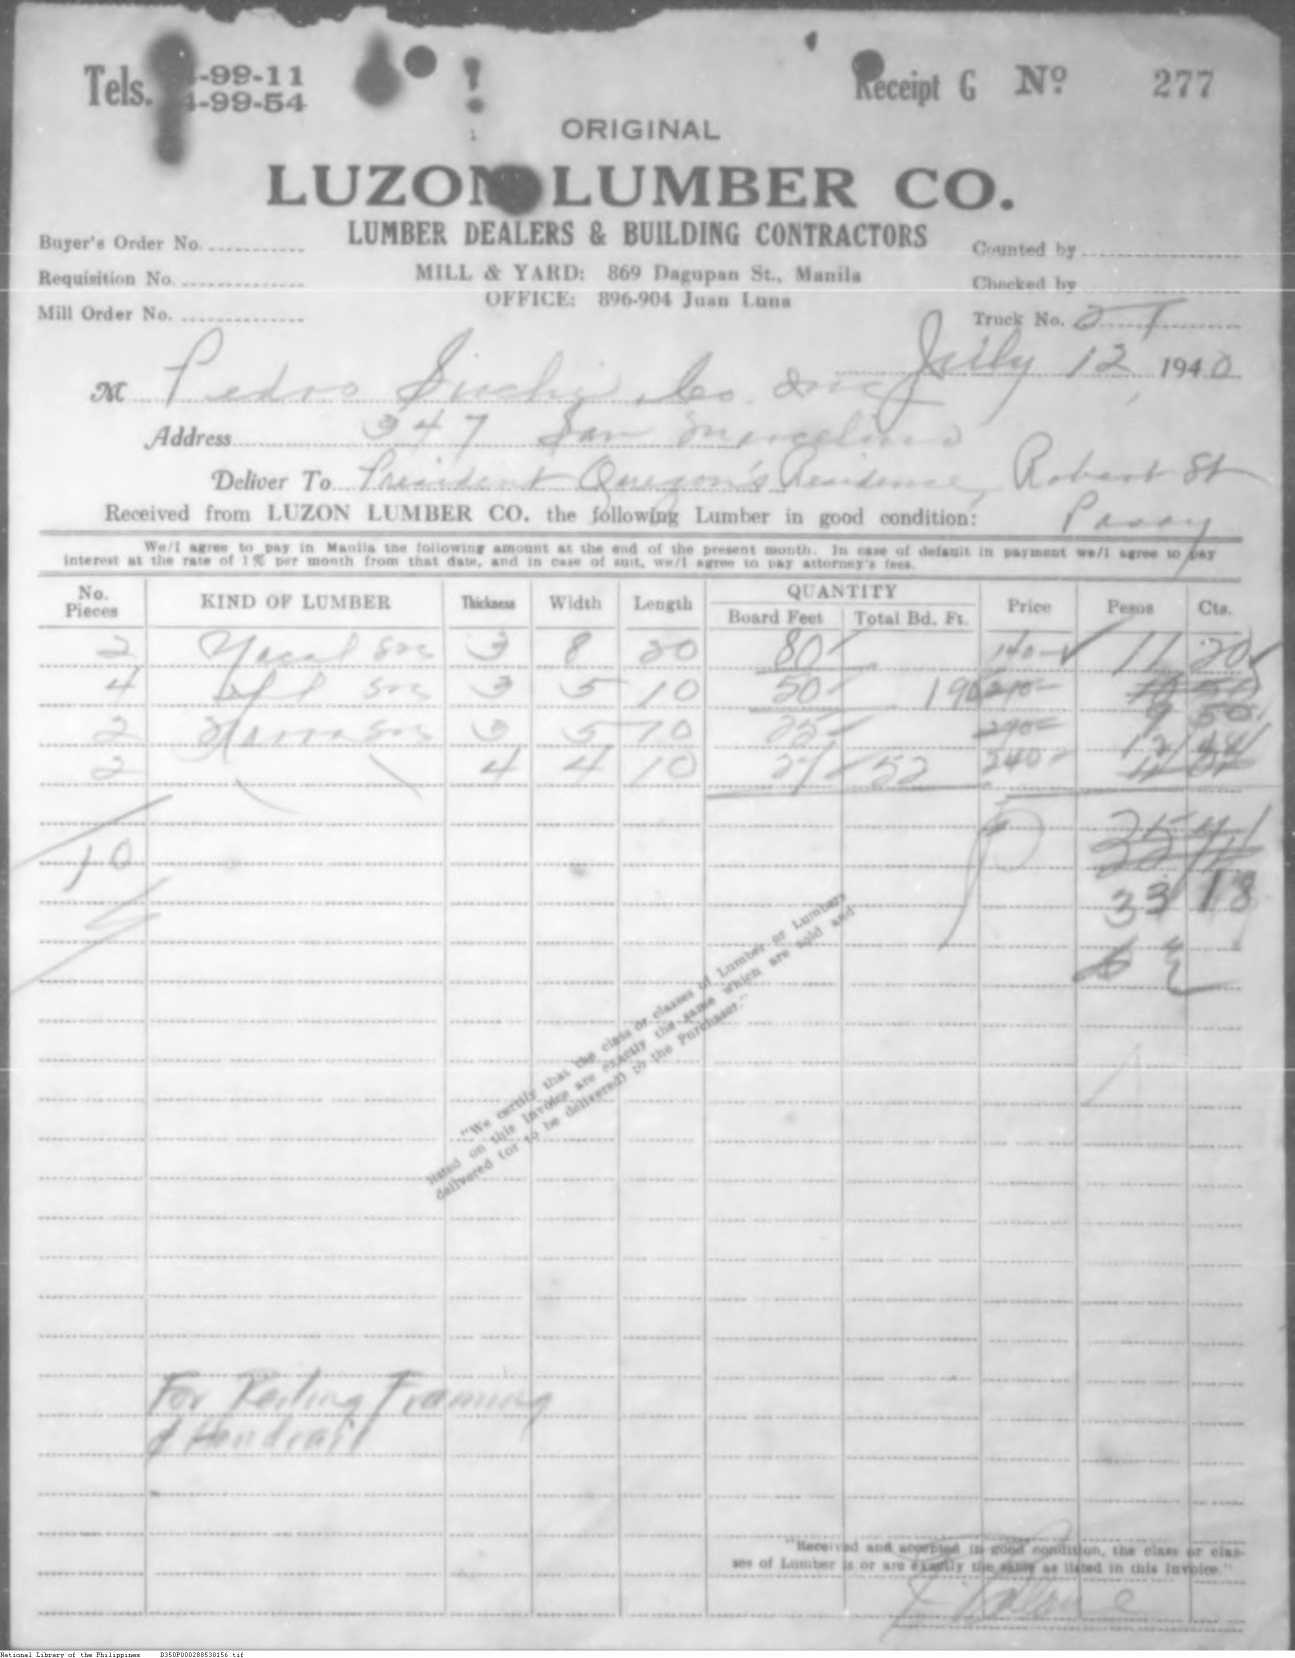 Tels. -99-11
-99-54
Receipt G No 277
ORIGINAL
LUZON LUMBER CO.
LUMBER DEALERS & BUILDING CONTRACTORS
MILL & YARD: 869 Dagupan St., Manila
OFFICE: 896-904 Juan Luna
Buyer's Order No.
Requisition No.
Mill Order No.
Counted by
Checked by
Truck No. 2 T
July 12, 1940
M Pedro Siochi Co. Inc
Address 347 San Marcelino
Deliver To President Quezon's Residence, Robert St
Pasay
Received from LUZON LUMBER CO. the following Lumber in good condition:
We/I agree to pay in Manila the following amount at the end of the present month. In case of default in payment we/I agree to pay
interest at the rate of 1% per month from that date, and in case of suit, we/I agree to pay attorney's fees.
No. Pieces KIND OF LUMBER Thickness Width Length QUANTITY Board Feet Total Bd. Ft. Price Pesos Cts.
2 Yacal 3 8 20 80 140- 11 20
4 3 5 10 50 190
9 50
2 3 5 10 25
2 4 4 10 27 52 240- 12 48
10
33 18
"We certify that the class or classes of Lumber or Lumbers
listed on this invoice are exactly the same which are sold and
delivered (or to be delivered) to the Purchaser."
For Framing
& Handrail
"Received and accepted in good condition, the class or clas-
ses of Lumber is or are exactly the same as listed in this Invoice."
National Library of the Philippines D350P000288530156.tif